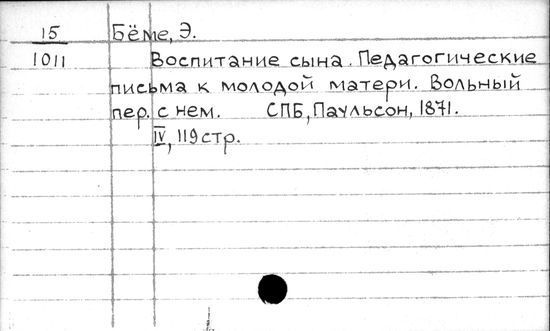 15 Бёме, Э.
1011 Воспитание сына. Педагогические
письма к молодой матери. Вольный
пер. с нем. СПБ, Паульсон, 1871.
IV, 119 стр.